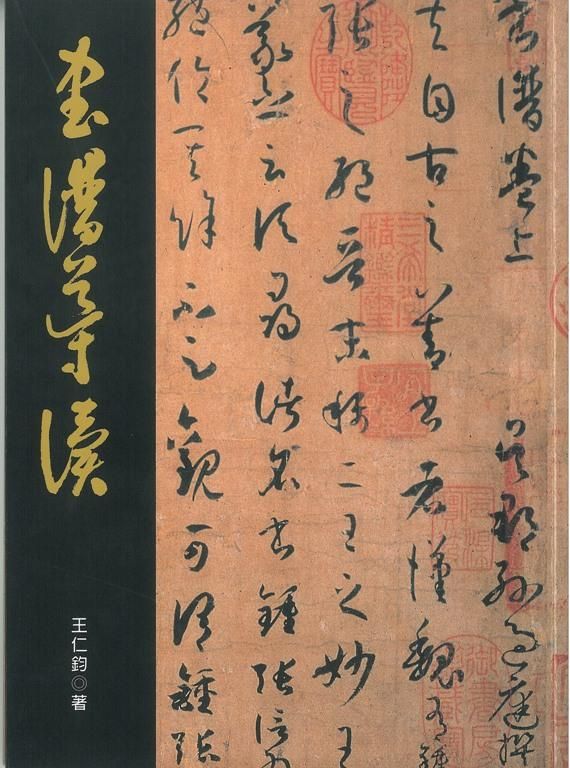 書譜導讀
王仁鈞◎著
書譜卷上 吳郡孫過庭撰
夫自古之善書者漢魏有鍾
張之絕晉末稱二王之妙王
羲之云頃尋諸名書鍾張信為
絕倫其餘不足觀可謂鍾張